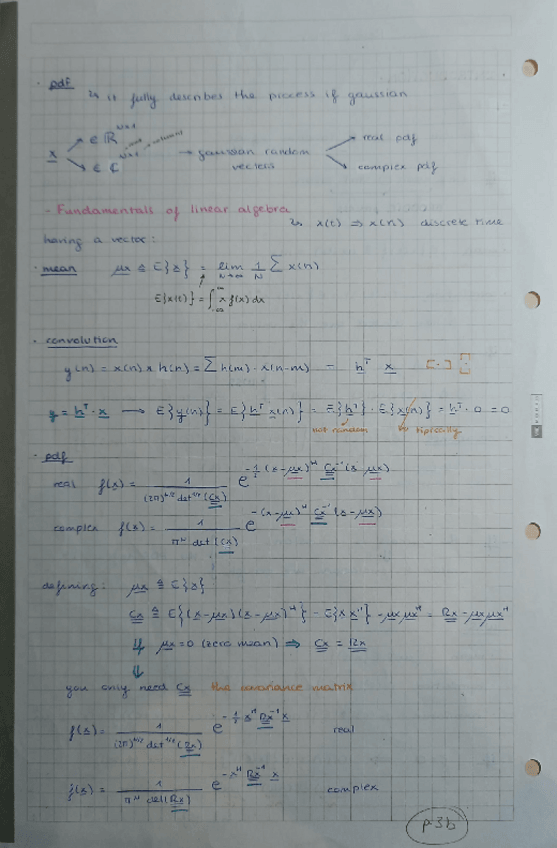 · pdf
↳ it fully describes the process if gaussian
x ∈ ℝ
∈ ℂ → gaussian random vectors → real pdf
complex pdf
- Fundamentals of linear algebra
↳ x(t) ⇒ x(n) discrete time
having a vector:
· mean μx ≜ E{x} = lim N→∞ 1/N Σ x(n)
E{x(t)} = ∫ x f(x) dx
· convolution
y(n) = x(n) * h(n) = Σ h(m) · x(n-m) = h^T x [·]
y = h^T · x → E{y(n)} = E{h^T x(n)} = E{h^T} · E{x(n)} = h^T · 0 = 0
not random
· pdf
real f(x) = 1/((2π)^(N/2) det^(1/2)(Cx)) e^(-1/2 (x-μx)^H Cx^-1 (x-μx))
complex f(x) = 1/(π^N det(Cx)) e^(-(x-μx)^H Cx^-1 (x-μx))
defining: μx ≜ E{x}
Cx ≜ E{(x-μx)(x-μx)^H} = E{x x^H} - μx μx^H = Rx - μx μx^H
⇓ μx = 0 (zero mean) ⇒ Cx = Rx
⇓
you only need Cx the covariance matrix
f(x) = 1/((2π)^(N/2) det^(1/2)(Rx)) e^(-1/2 x^H Rx^-1 x) real
f(x) = 1/(π^N det(Rx)) e^(-x^H Rx^-1 x) complex
p3b